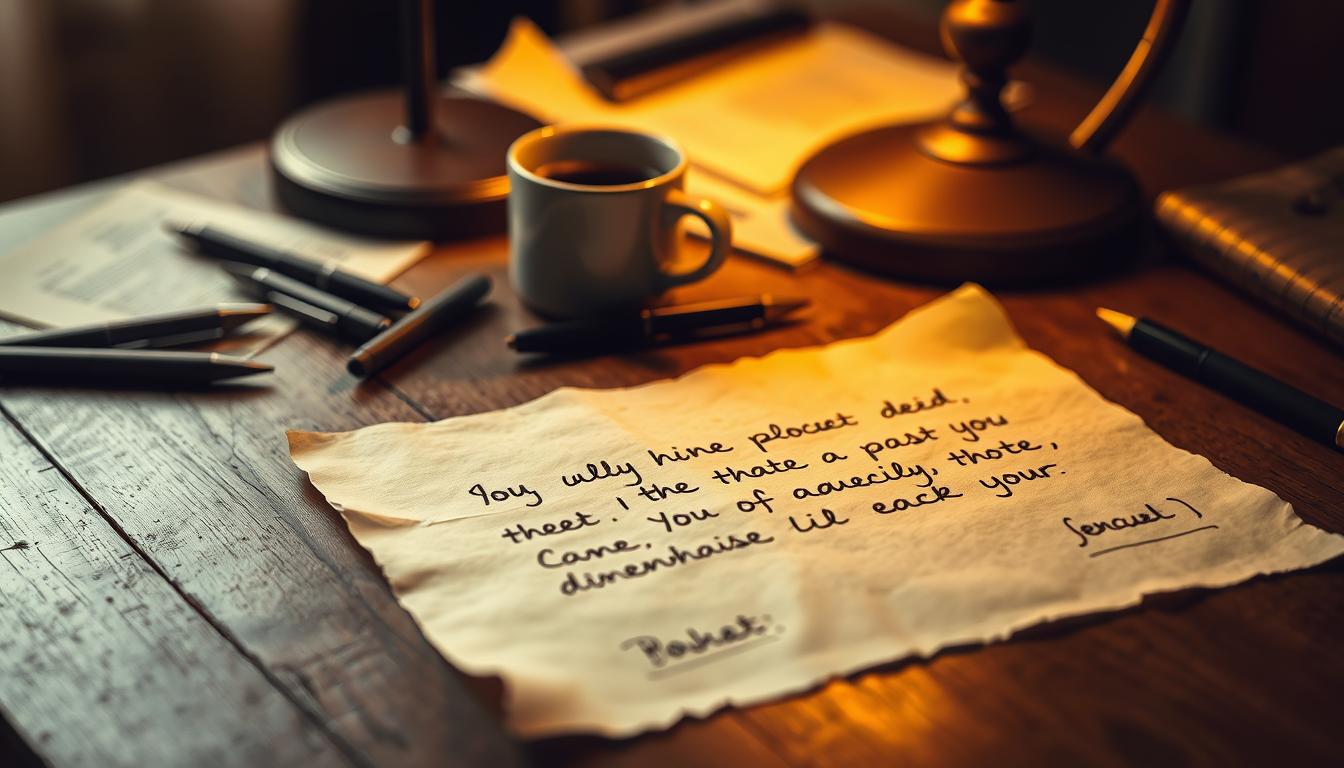 Joy ully hine plocut deid.
theet. I the thate a past you
Came. you of aavecily, thote,
dimenhaise lil eack your.
Senauel)
Posket.